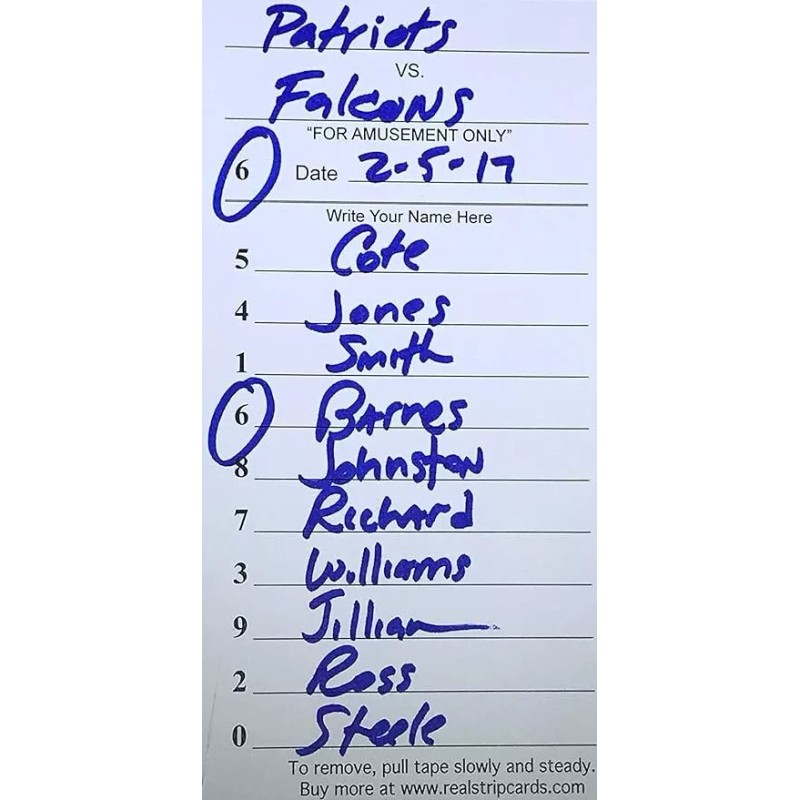 Patriots
VS.
Falcons
"FOR AMUSEMENT ONLY"
6 Date 2-5-17
Write Your Name Here
5 Cote
4 Jones
1 Smith
6 Barnes
8 Johnston
7 Richard
3 Williams
9 Jillian
2 Ross
0 Steele
To remove, pull tape slowly and steady.
Buy more at www.realstripcards.com